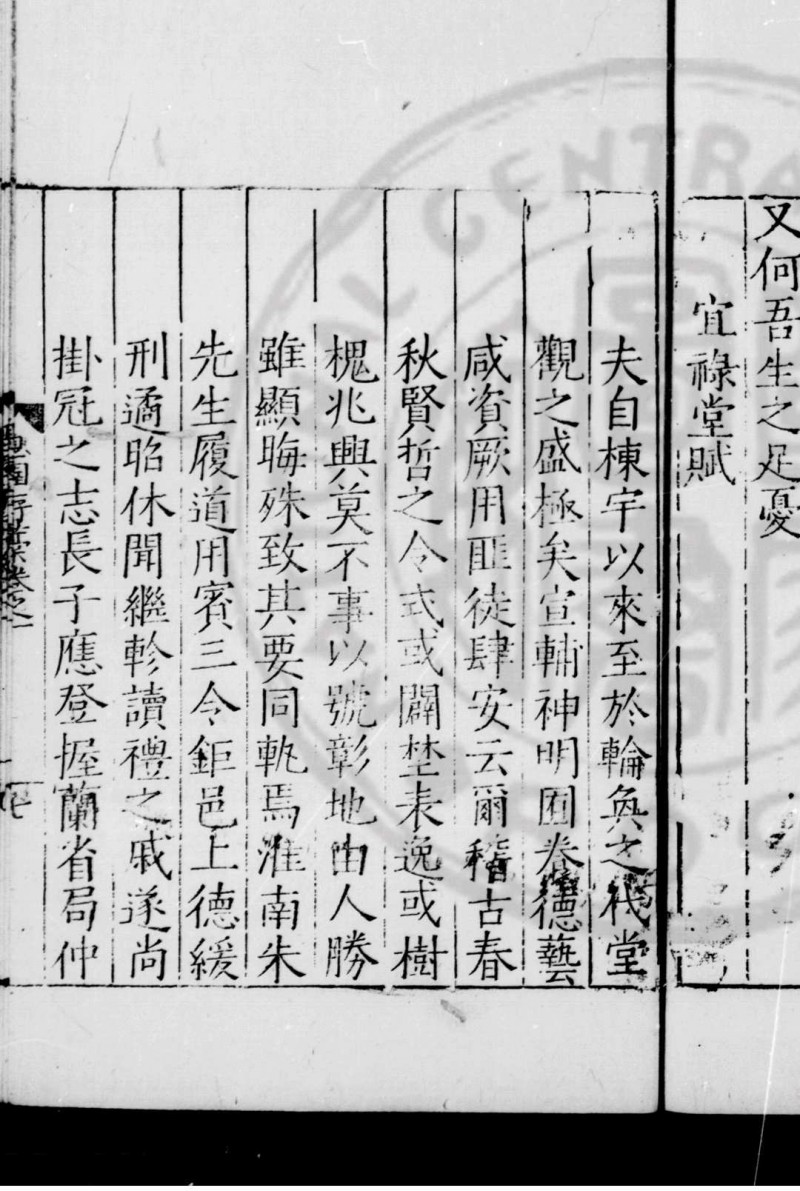 又何吾生之足憂
宜祿堂賦
夫自棟宇以來至於輪奐之代堂
觀之盛極矣宣輔神明囿養德藝
咸資厥用匪徒肆安云爾稽古春
秋賢哲之令式或闢埜表逸或樹
槐兆興莫不事以號彰地由人勝
雖顯晦殊致其要同軌焉淮南朱
先生履道用賓三令鉅邑上德緩
刑遹昭休聞繼軫讀禮之戚遂尚
掛冠之志長子應登握蘭省局仲
存藁卷之一
CENTRA